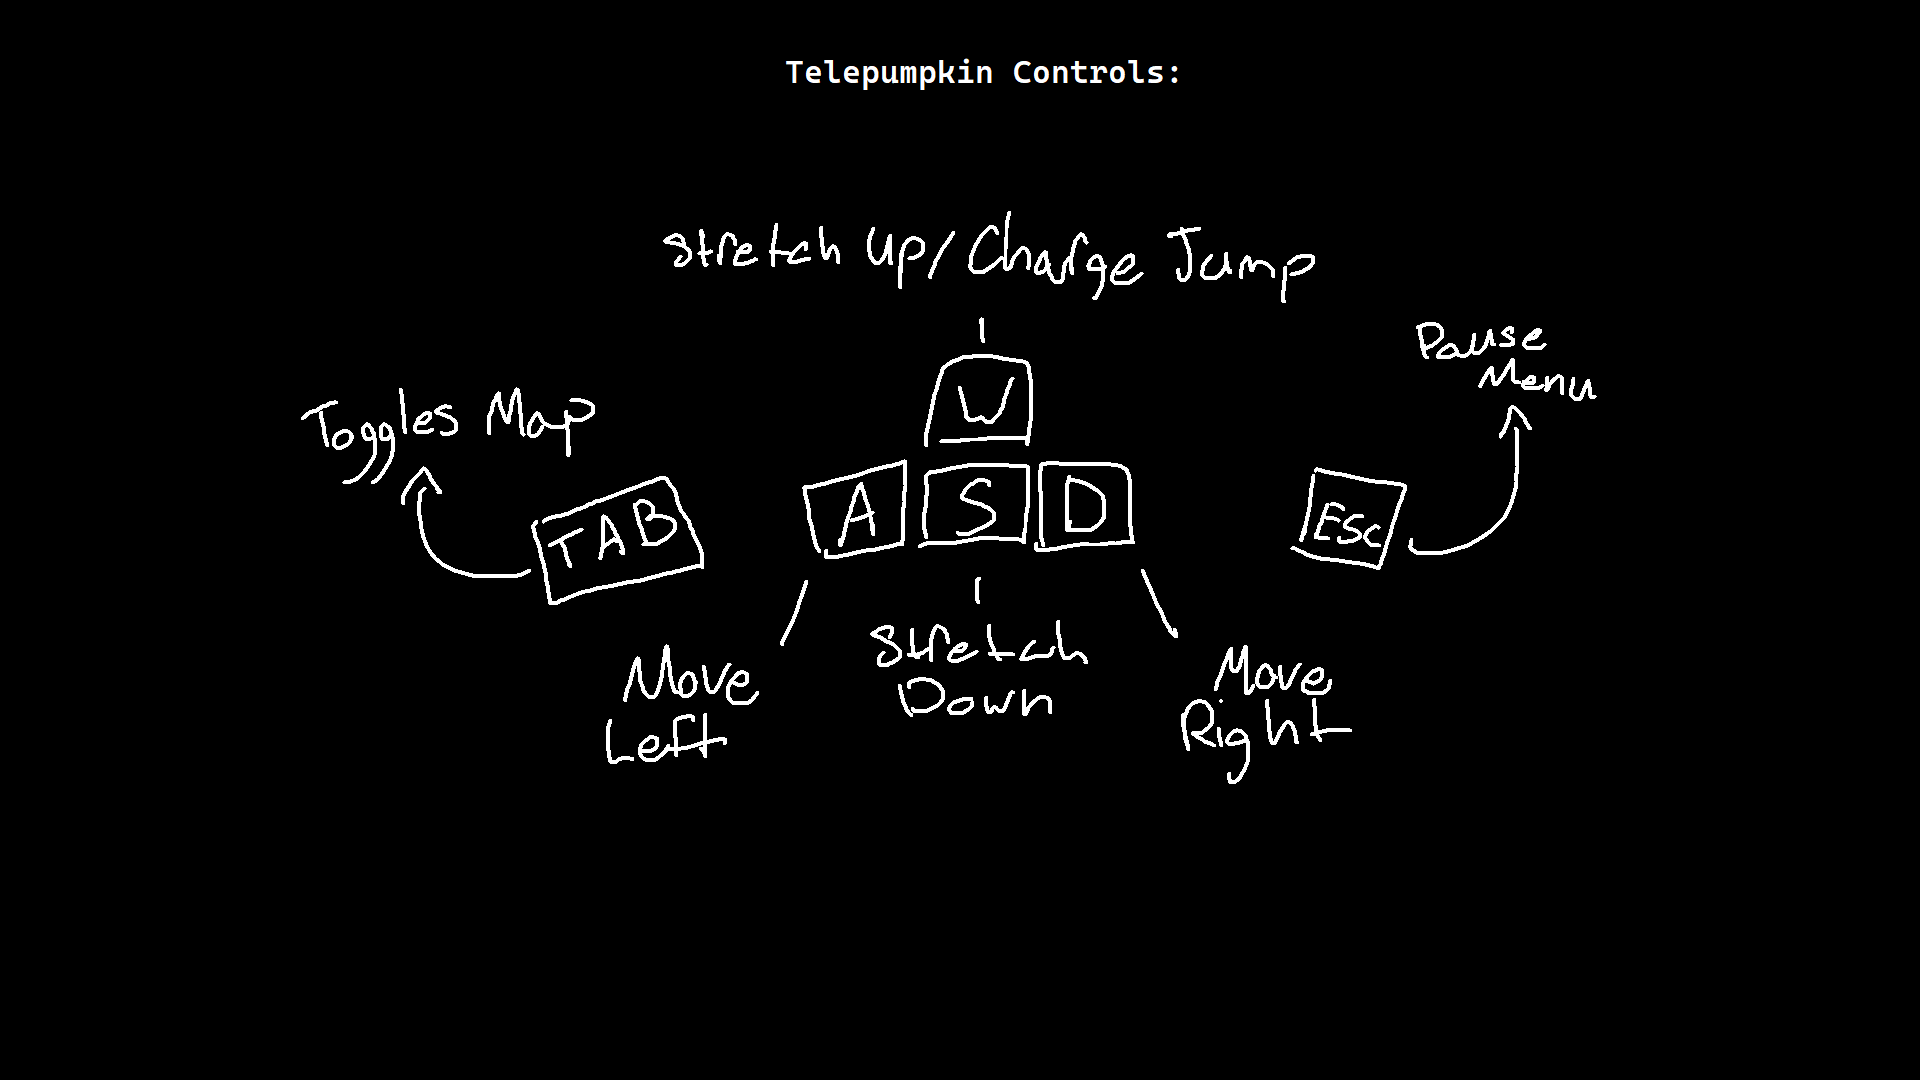 Telepumpkin Controls:
Stretch Up/Charge Jump
Pause
Menu
Toggles Map
W
TAB
A
S
D
ESC
Move
Left
Stretch
Down
Move
Right